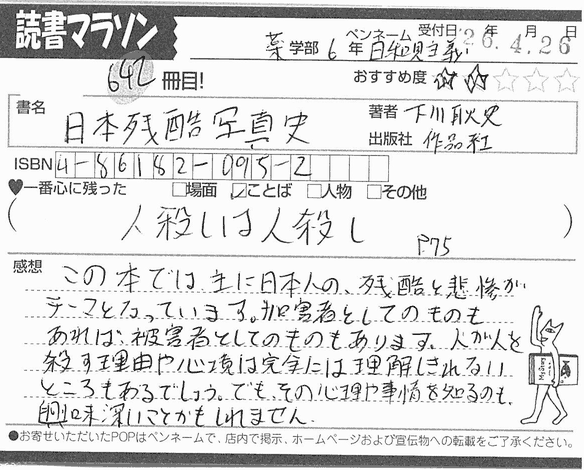 読書マラソン
642冊目!
薬学部 6年 ペンネーム 日和見主義 受付日 '26年 4月 26日
おすすめ度 ★★☆☆☆
書名 日本残酷写真史
著者 下川耿史
出版社 作品社
ISBN 4-86182-095-2
♥一番心に残った □場面 ☑ことば □人物 □その他
(人殺しは人殺し P75)
感想
この本では主に日本人の、残酷と悲惨が
テーマとなっています。加害者としてのものも
あれば、被害者としてのものもあります。人が人を
殺す理由や心境は完全には理解しきれない
ところもあるでしょう。でも、その心理や事情を知るのも、
興味深いことかもしれません。
●お寄せいただいたPOPはペンネームで、店内で掲示、ホームページおよび宣伝物への転載をご了承ください。